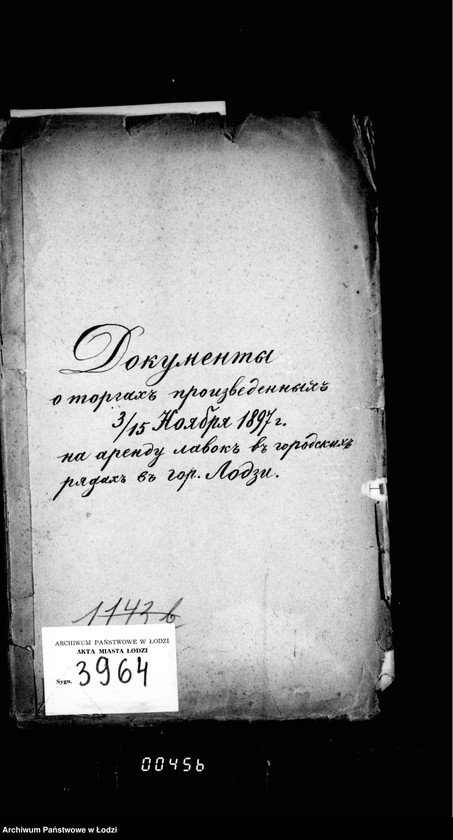 Документы
о торгахъ произведенныхъ
3/15 Ноября 1897 г.
на аренду лавокъ въ городскихъ
рядахъ въ гор. Лодзи.
1143 b
ARCHIWUM PAŃSTWOWE W ŁODZI
AKTA MIASTA ŁODZI
Sygn. 3964
00456
Archiwum Państwowe w Łodzi